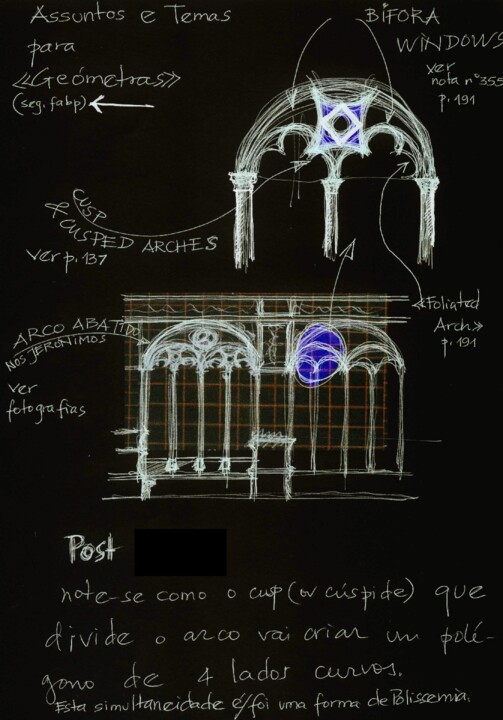 Assuntos e Temas
para
«Geómetras»
(seg. fabp)
BÍFORA
WINDOWS
ver
nota nº 355
p. 191
CUSP
& CUSPED ARCHES
ver p. 137
«Foliated
Arch»
p. 191
ARCO ABATIDO
NOS JERÓNIMOS
ver
fotografias
Post
note-se como o cusp (ou cúspide) que
divide o arco vai criar um polí-
gono de 4 lados curvos.
Esta simultaneidade é/foi uma forma de Polissemia.